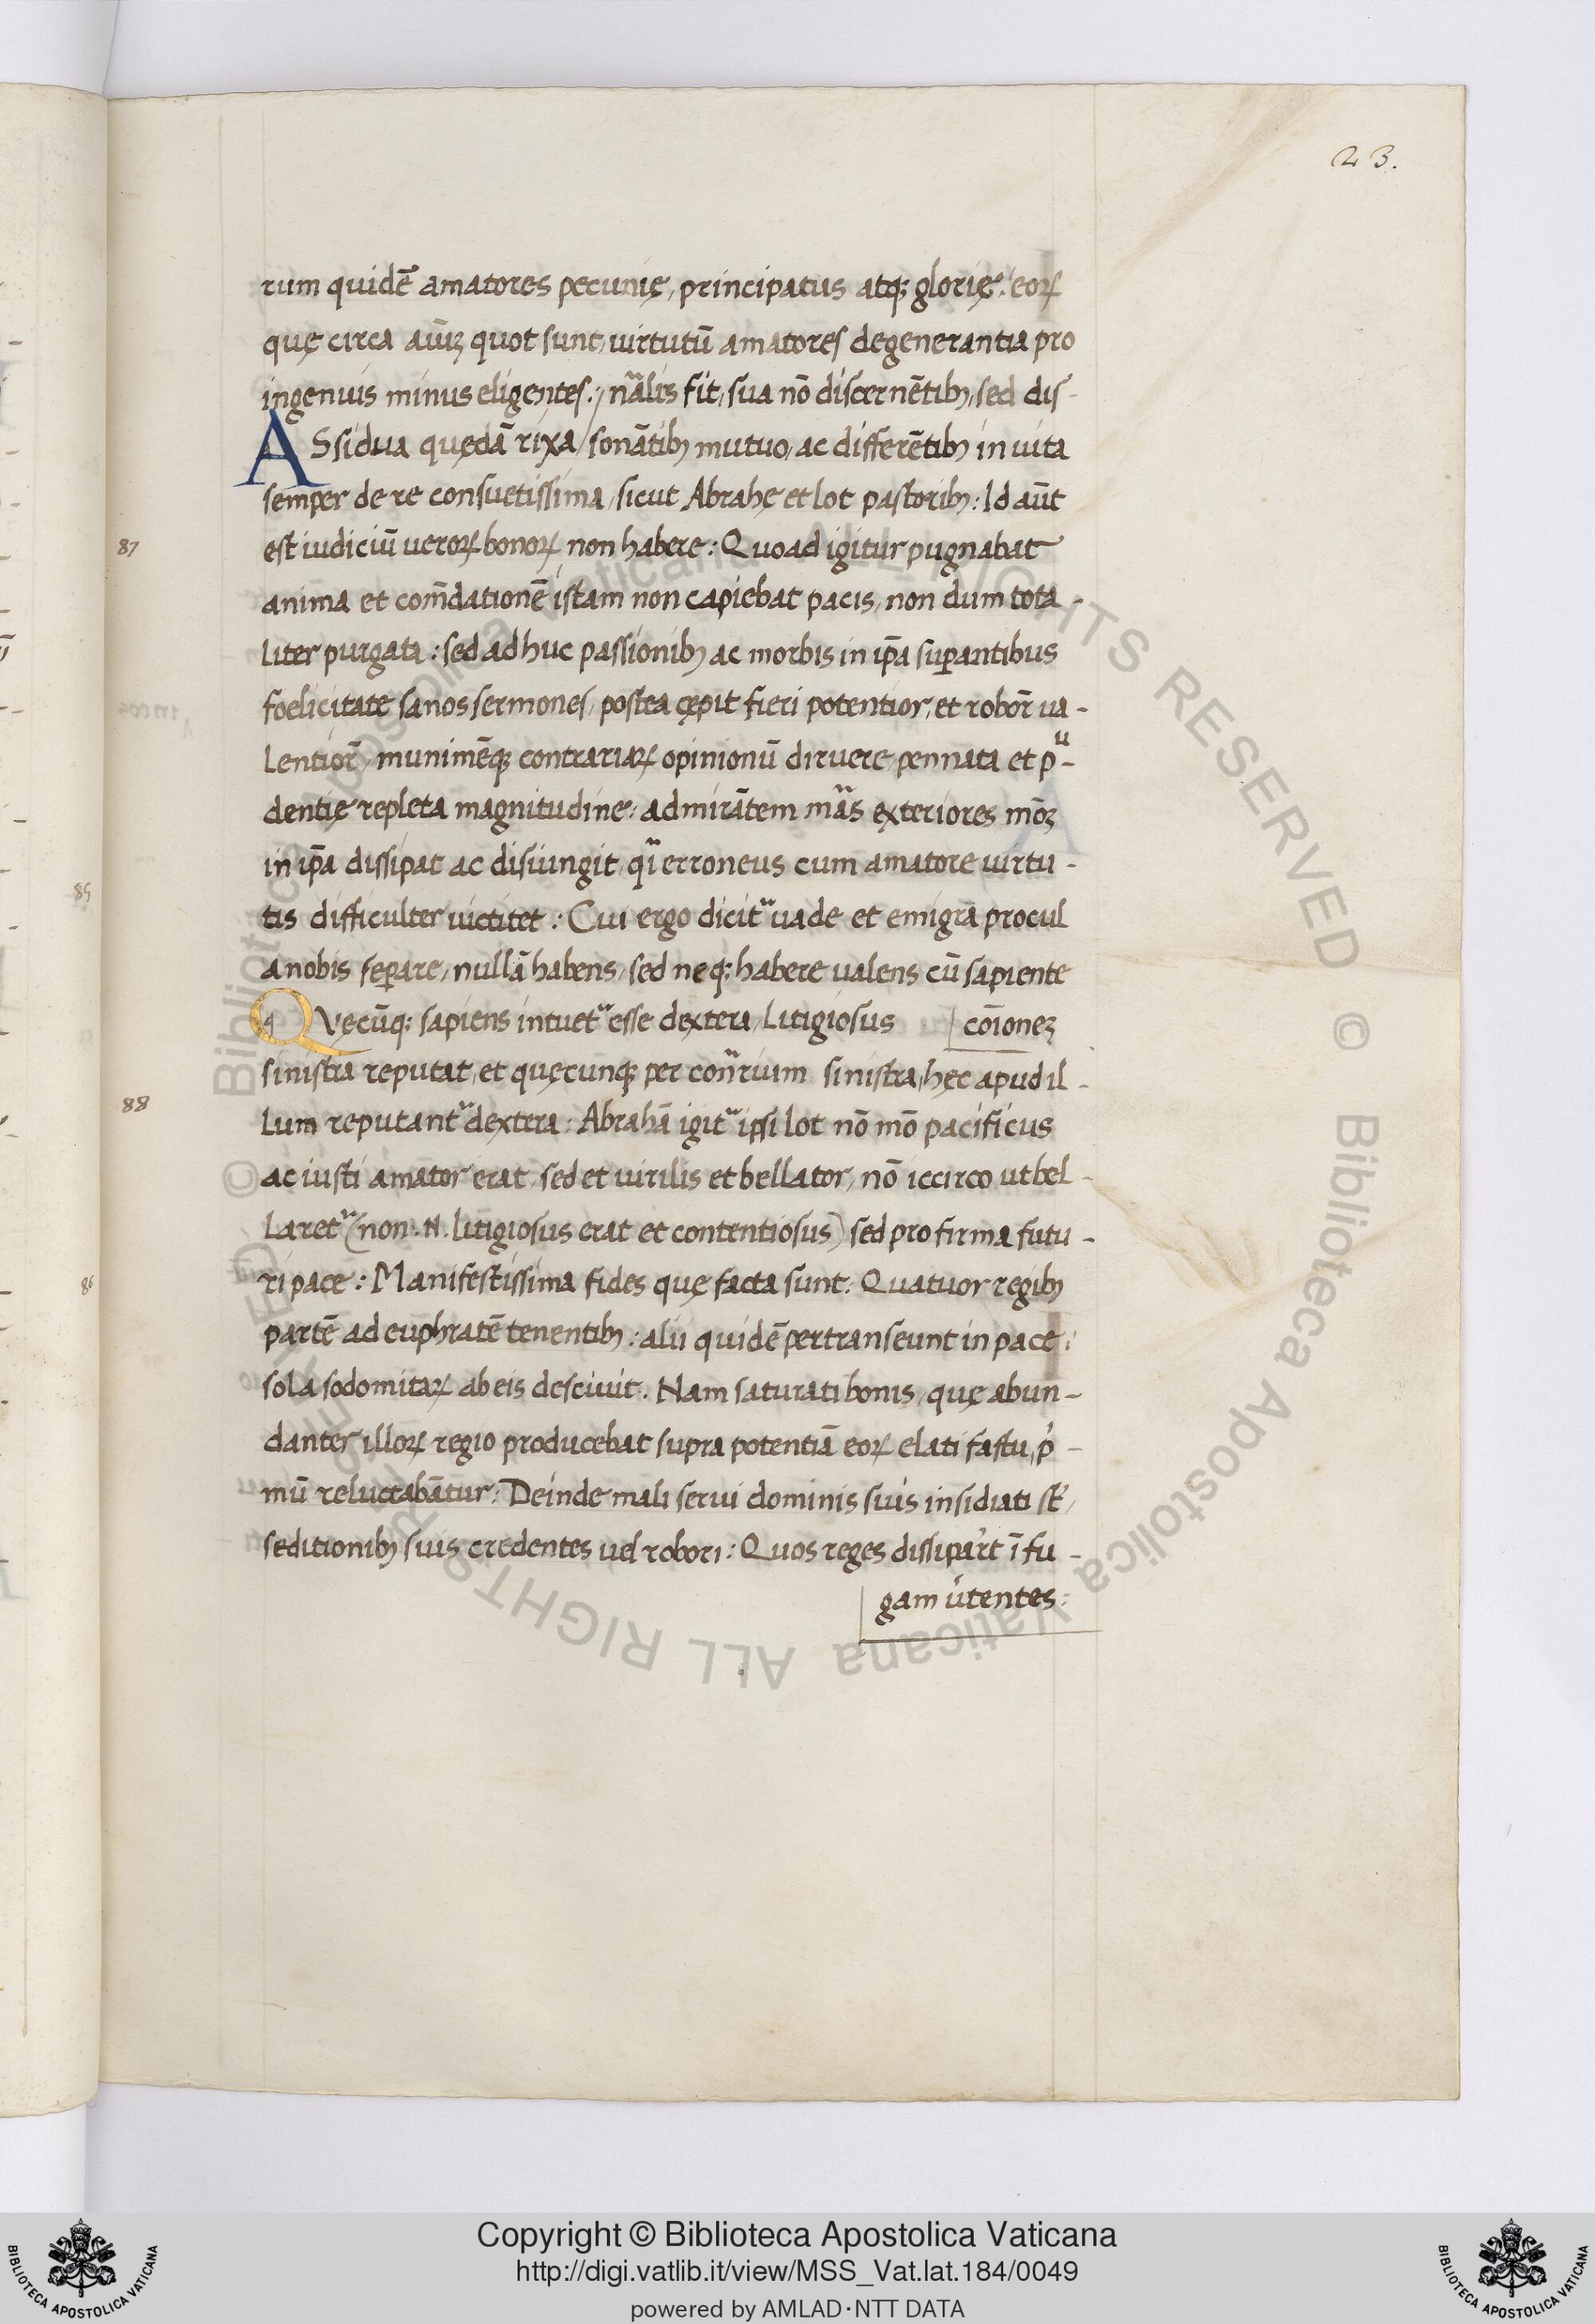 23.
rum quidē amatores pecunię, principatus atq; glorię: eoꝝ
quę circa aiūꝫ quot sunt, uirtutū amatores degenerantia pro
ingenuis minus eligentes:, nãlis fit, sua nō discernētibꝫ, sed dis-
ASsidua quędā rixa / sonātibꝫ mutuo, ac differētibꝫ in uita
semper de re consuetissima, sicut Abrahę et lot pastoribꝫ: Id aūt
87
est iudiciū ueroꝝ bonoꝝ, non habere: Quoad igitur pugnabat
anima et com̄dationē istam non capiebat pacis, non dum tota-
liter purgata: sed ad huc passionibꝫ ac morbis in ip̄a suꝑantibus
foelicitate sanos sermones, postea cępit fieri potentior, et robor̄ ua-
lentior̄, munimēqꝫ contrariaꝝ opinionū diruere pennata et pᵘ-
dentię repleta magnitudine: admirātem mãs exteriores mōꝫ
in ip̄a dissipat ac disiungit, qi erroneus cum amatore uirtu-
tis difficulter uictitet: Cui ergo dicit᷑ uade et emigra procul
a nobis seꝑare, nullā habens, sed neq; habere ualens cū sapiente
QVęcūq; sapiens intuet᷑ esse dextera, Litigiosus | cōioneꝫ
sinistra reputat, et quęcunqꝫ per con᷑rium sinistra, hęc apud il-
88
lum reputant᷑ dextera: Abrahā igit᷑ ipsi lot nō mō pacificus
ac iusti amator erat, sed et uirilis et bellator, nō iccirco ut bel-
laret᷑ (non .N. litigiosus erat et contentiosus) sed pro firma futu-
ri pace: Manifestissima fides quę facta sunt: Quatuor regibꝫ
partē ad euphratē tenentibꝫ: alii quidē pertranseunt in pace:
sola sodomitaꝝ ab eis desciuit. Nam saturati bonis, quę abun-
danter illoꝝ regio producebat supra potentiā eoꝝ elati fastu, p̓-
mū reluctabātur: Deinde mali serui dominis suis insidiati st̄,
seditionibꝫ suis credentes uel robori: Quos reges dissipar̄t ī fu-
gam ūtentes:
85
86
Copyright © Biblioteca Apostolica Vaticana
http://digi.vatlib.it/view/MSS_Vat.lat.184/0049
powered by AMLAD·NTT DATA
BIBLIOTECA APOSTOLICA VATICANA
BIBLIOTECA APOSTOLICA VATICANA
© Biblioteca Apostolica Vaticana ALL RIGHTS RESERVED © Biblioteca Apostolica Vaticana ALL RIGHTS RESERVED